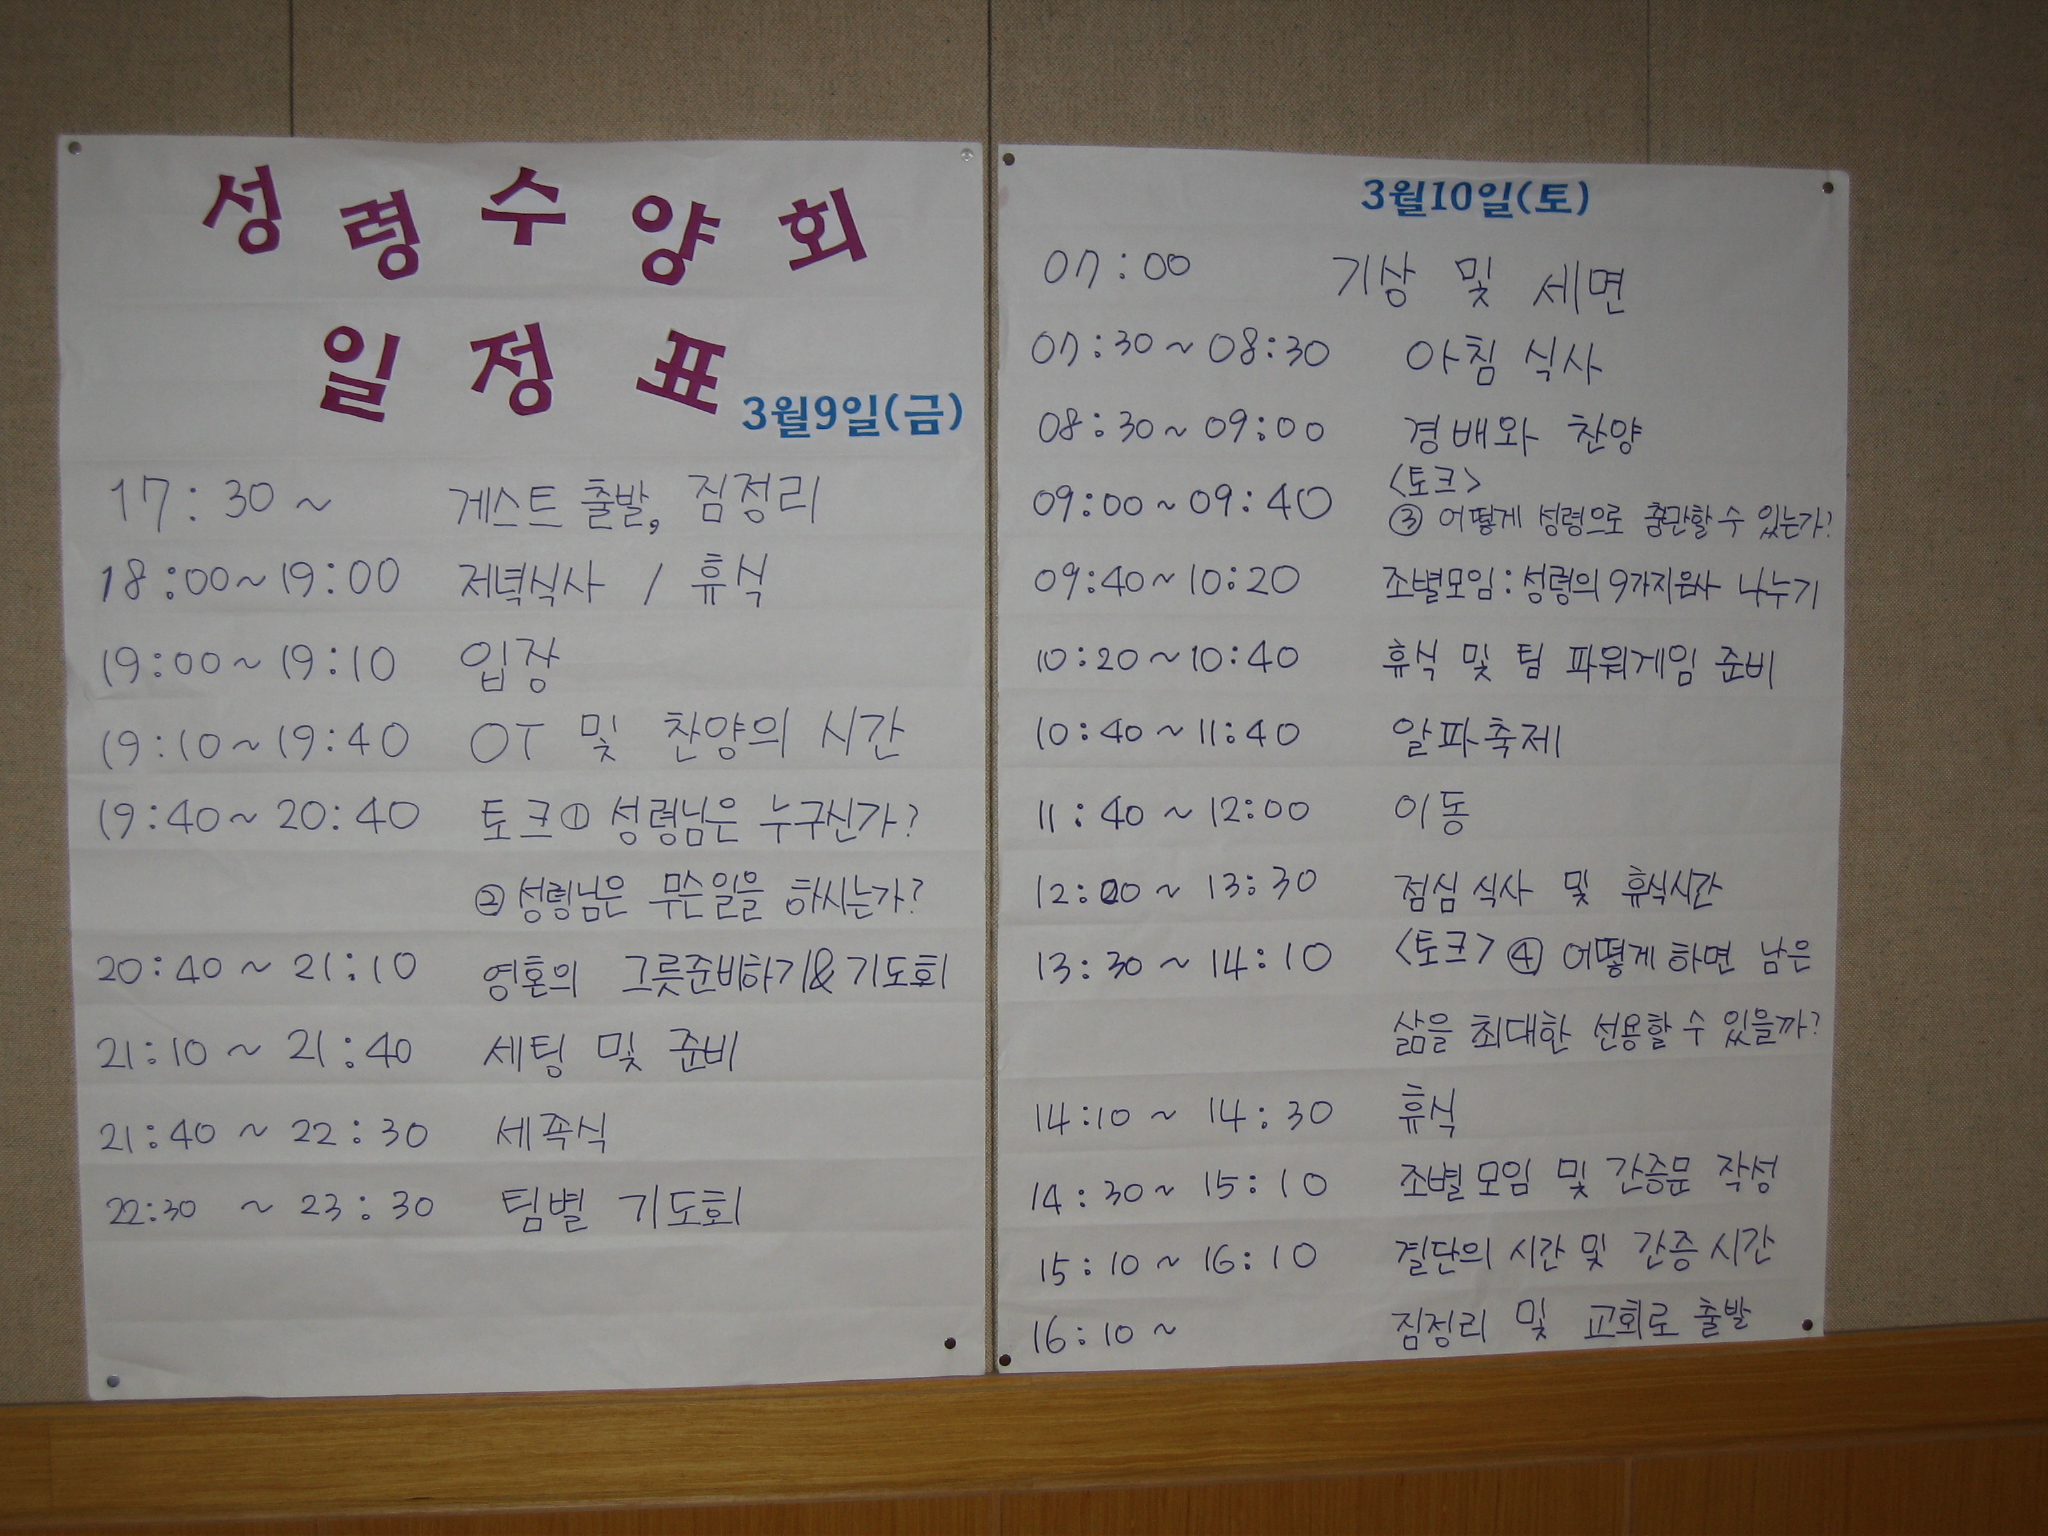 성령수양회
일정표
3월9일(금)
17:30~ 게스트 출발, 짐정리
18:00~19:00 저녁식사 / 휴식
19:00~19:10 입장
19:10~19:40 OT 및 찬양의 시간
19:40~20:40 토크① 성령님은 누구신가?
② 성령님은 무슨일을 하시는가?
20:40~21:10 영혼의 그릇준비하기&기도회
21:10~21:40 세팅 및 준비
21:40~22:30 세족식
22:30~23:30 팀별 기도회
3월10일(토)
07:00 기상 및 세면
07:30~08:30 아침 식사
08:30~09:00 경배와 찬양
<토크>
09:00~09:40 ③ 어떻게 성령으로 충만할 수 있는가?
09:40~10:20 조별모임: 성령의 9가지은사 나누기
10:20~10:40 휴식 및 팀 파워게임 준비
10:40~11:40 알파축제
11:40~12:00 이동
12:00~13:30 점심 식사 및 휴식시간
13:30~14:10 <토크> ④ 어떻게 하면 남은
삶을 최대한 선용할 수 있을까?
14:10~14:30 휴식
14:30~15:10 조별 모임 및 간증문 작성
15:10~16:10 결단의 시간 및 간증 시간
16:10~ 짐정리 및 교회로 출발